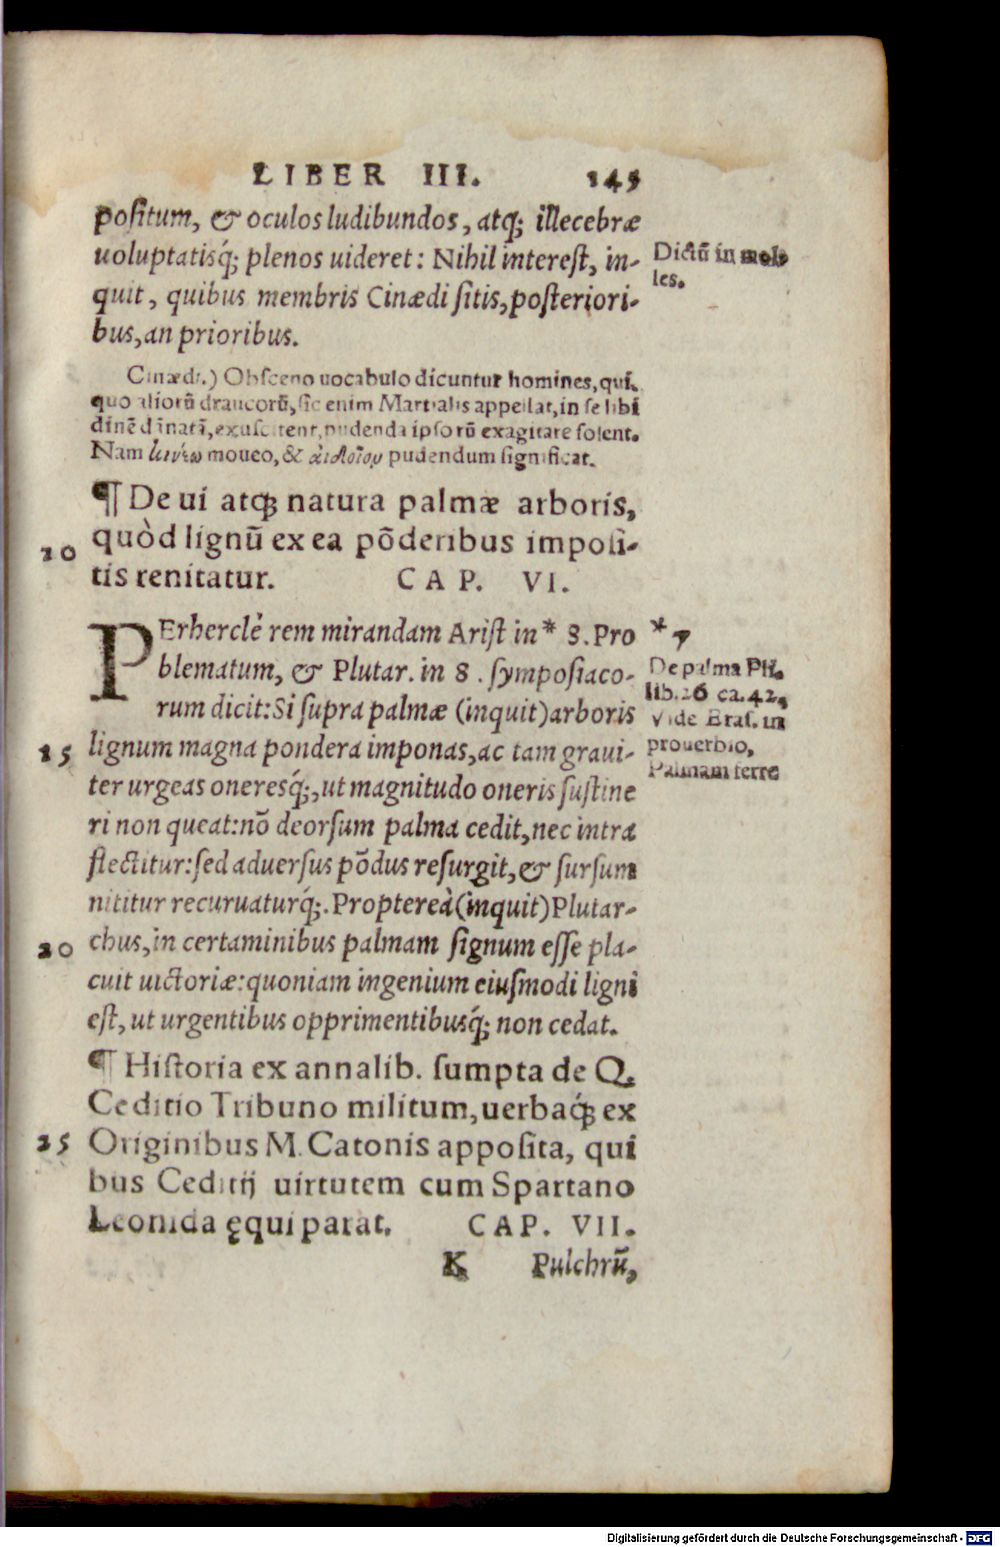 LIBER III. 145
positum, & oculos ludibundos, atq; illecebræ
uoluptatisq́; plenos uideret: Nihil interest, in-
quit, quibus membris Cinædi sitis, posteriori-
bus, an prioribus.
Dictū in mol-
les.
Cinædi.) Obsceno uocabulo dicuntur homines, qui,
quo aliorū draucorū, sic enim Martialis appellat, in se libi
dinē dīnatā, exuscitent, pudenda ipsorū exagitare solent.
Nam κινέω moueo, & αἰδοῖον pudendum significat.
¶ De ui atq; natura palmæ arboris,
quòd lignū ex ea pōderibus imposi-
tis renitatur. CAP. VI.
10
PErherclè rem mirandam Arist in * 8. Pro
blematum, & Plutar. in 8. symposiaco-
rum dicit: Si supra palmæ (inquit) arboris
lignum magna pondera imponas, ac tam graui-
ter urgeas oneresq́;, ut magnitudo oneris sustine
ri non queat: nō deorsum palma cedit, nec intra
flectitur: sed aduersus pōdus resurgit, & sursum
nititur recuruaturq́;. Propterea (inquit) Plutar-
chus, in certaminibus palmam signum esse pla-
cuit uictoriæ: quoniam ingenium eiusmodi ligni
est, ut urgentibus opprimentibusq́; non cedat.
* 7
De palma Pli.
lib. 16 ca. 42,
Vide Eras. in
prouerbio,
Palmam ferre
15
20
¶ Historia ex annalib. sumpta de Q.
Ceditio Tribuno militum, uerbaq́; ex
Originibus M. Catonis apposita, qui
bus Ceditij uirtutem cum Spartano
Leonida ęquiparat. CAP. VII.
25
K Pulchrū,
Digitalisierung gefördert durch die Deutsche Forschungsgemeinschaft - DFG